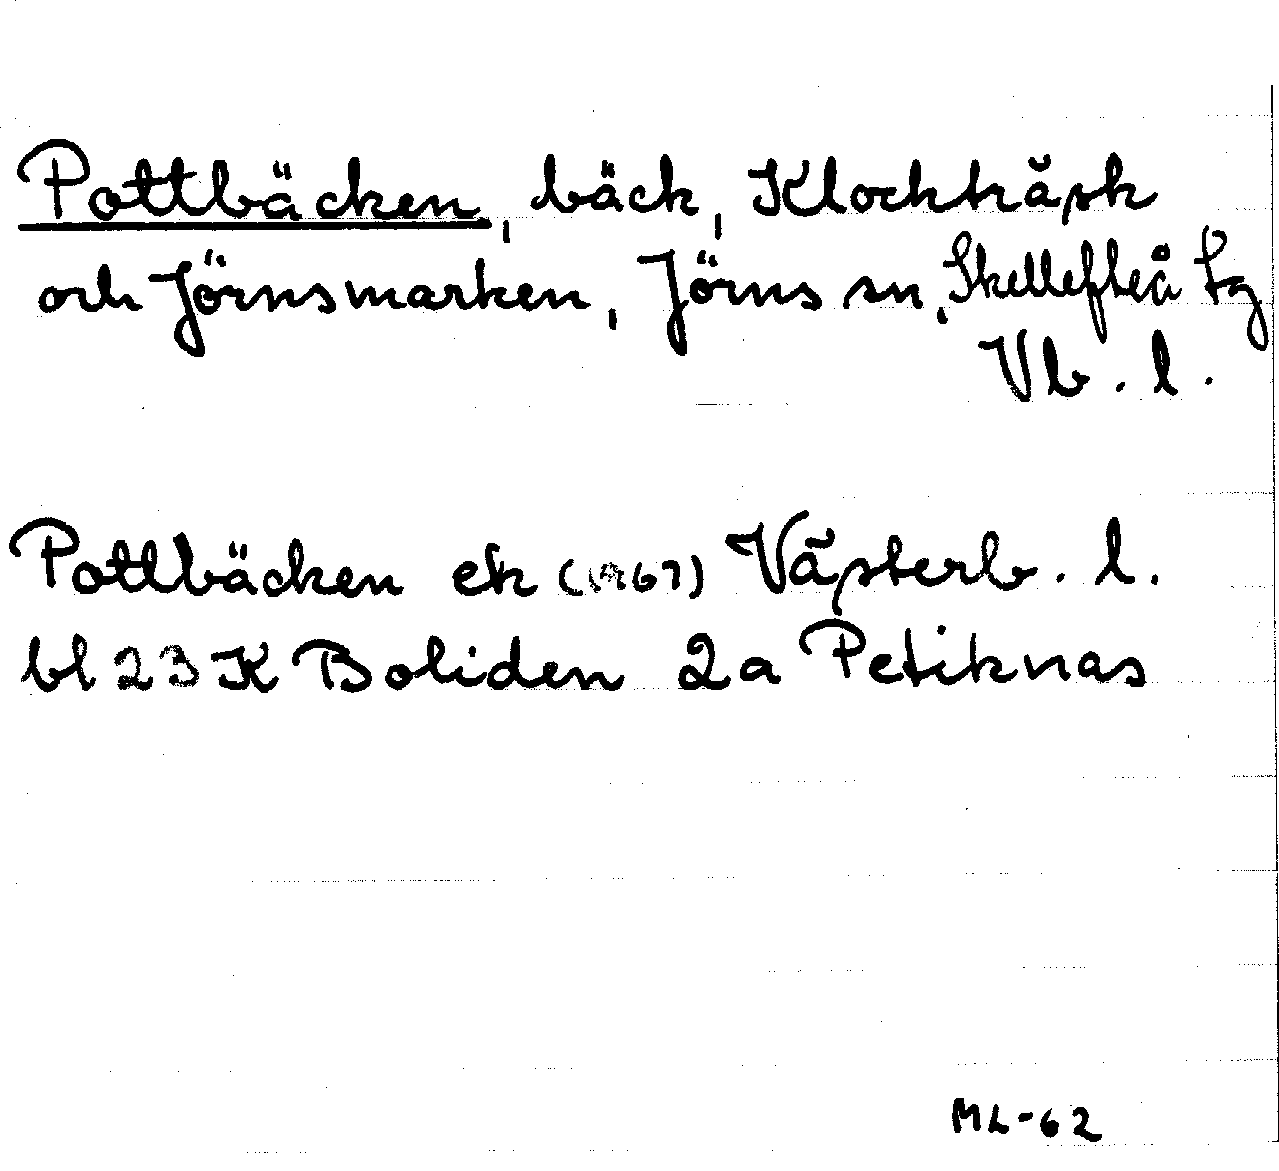 Pottbäcken, bäck, Klockträsk
och Jörnsmarken, Jörns sn, Skellefteå tg
Vb. l.
Pottbäcken ek (1967) Västerb. l.
bl 23 K Boliden 2a Petiknäs
ML-62